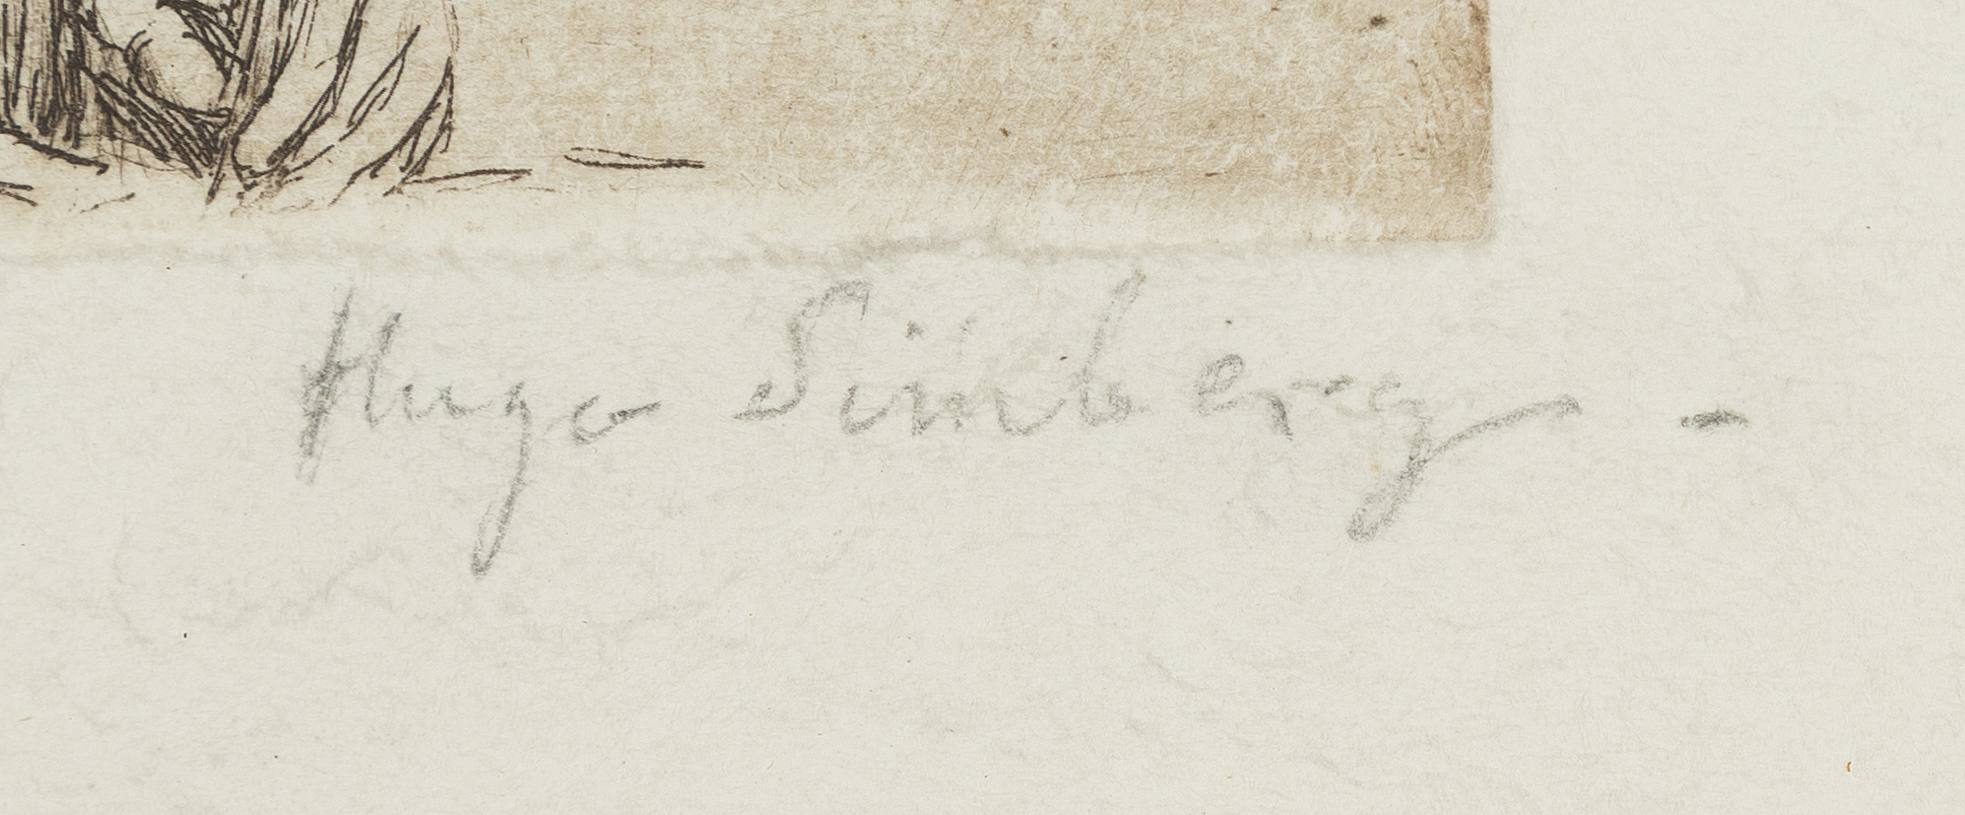 Hugo Simberg -